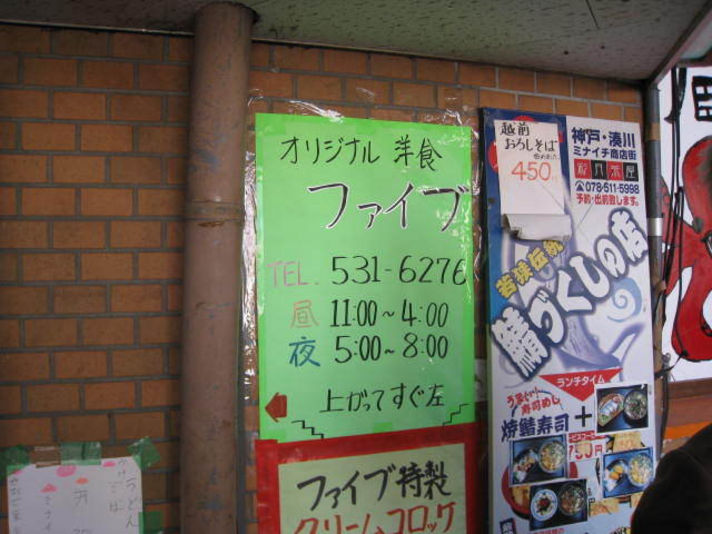 オリジナル 洋食
ファイブ
TEL. 531-6276
昼 11:00～4:00
夜 5:00～8:00
上がってすぐ左
ファイブ特製
クリームコロッケ
越前
おろしそば
450
神戸・湊川
ミナイチ商店街
078-511-5998
予約・出前致します。
若狭伝統
鯖づくしの店
ランチタイム
寿司めし
焼鯖寿司+
うどん
そば
丼